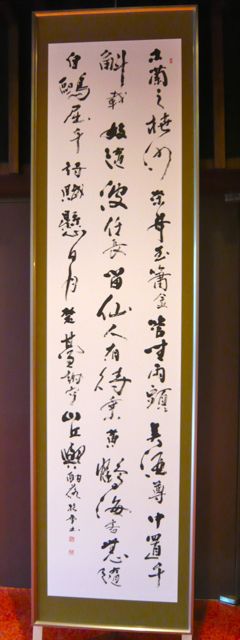 木蘭之枻沙棠舟玉簫金管坐兩頭美酒尊中置千
斛載妓隨波任去留仙人有待乘黃鶴海客無心隨
白鷗屈平詞賦懸日月楚王臺榭空山丘興酣落